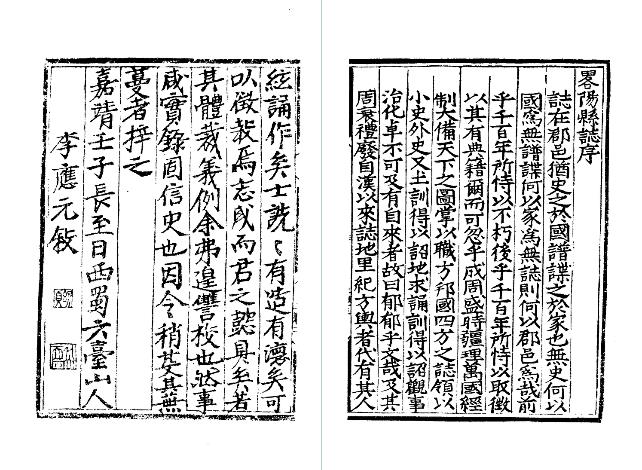 畧陽縣誌序
誌在郡邑猶史之於國譜諜之於家也無史何以
國寫無譜諜何以家寫無誌則何以郡邑寫哉前
乎千百年所恃以不朽後乎千百年所恃以取徵
以其有典籍爾而可忽乎成周盛時疆理萬國經
制大備天下之圖掌以職方邦國四方之誌領以
小史外史又土訓得以詔地求誦訓得以詔觀事
治化卓不可及有自來者故曰郁郁乎文哉及其
周衰禮廢自漢以來誌地里紀方輿者代有其人
絃誦作矣士詵〻有造有瀆矣可
以徵教焉志成而君之懿具矣若
其體裁義例余弗遑讐校也然事
咸實錄固信史也因令稍芟其蕪
蔓者梓之
嘉靖壬子長至日西蜀六臺山人
李應元敘